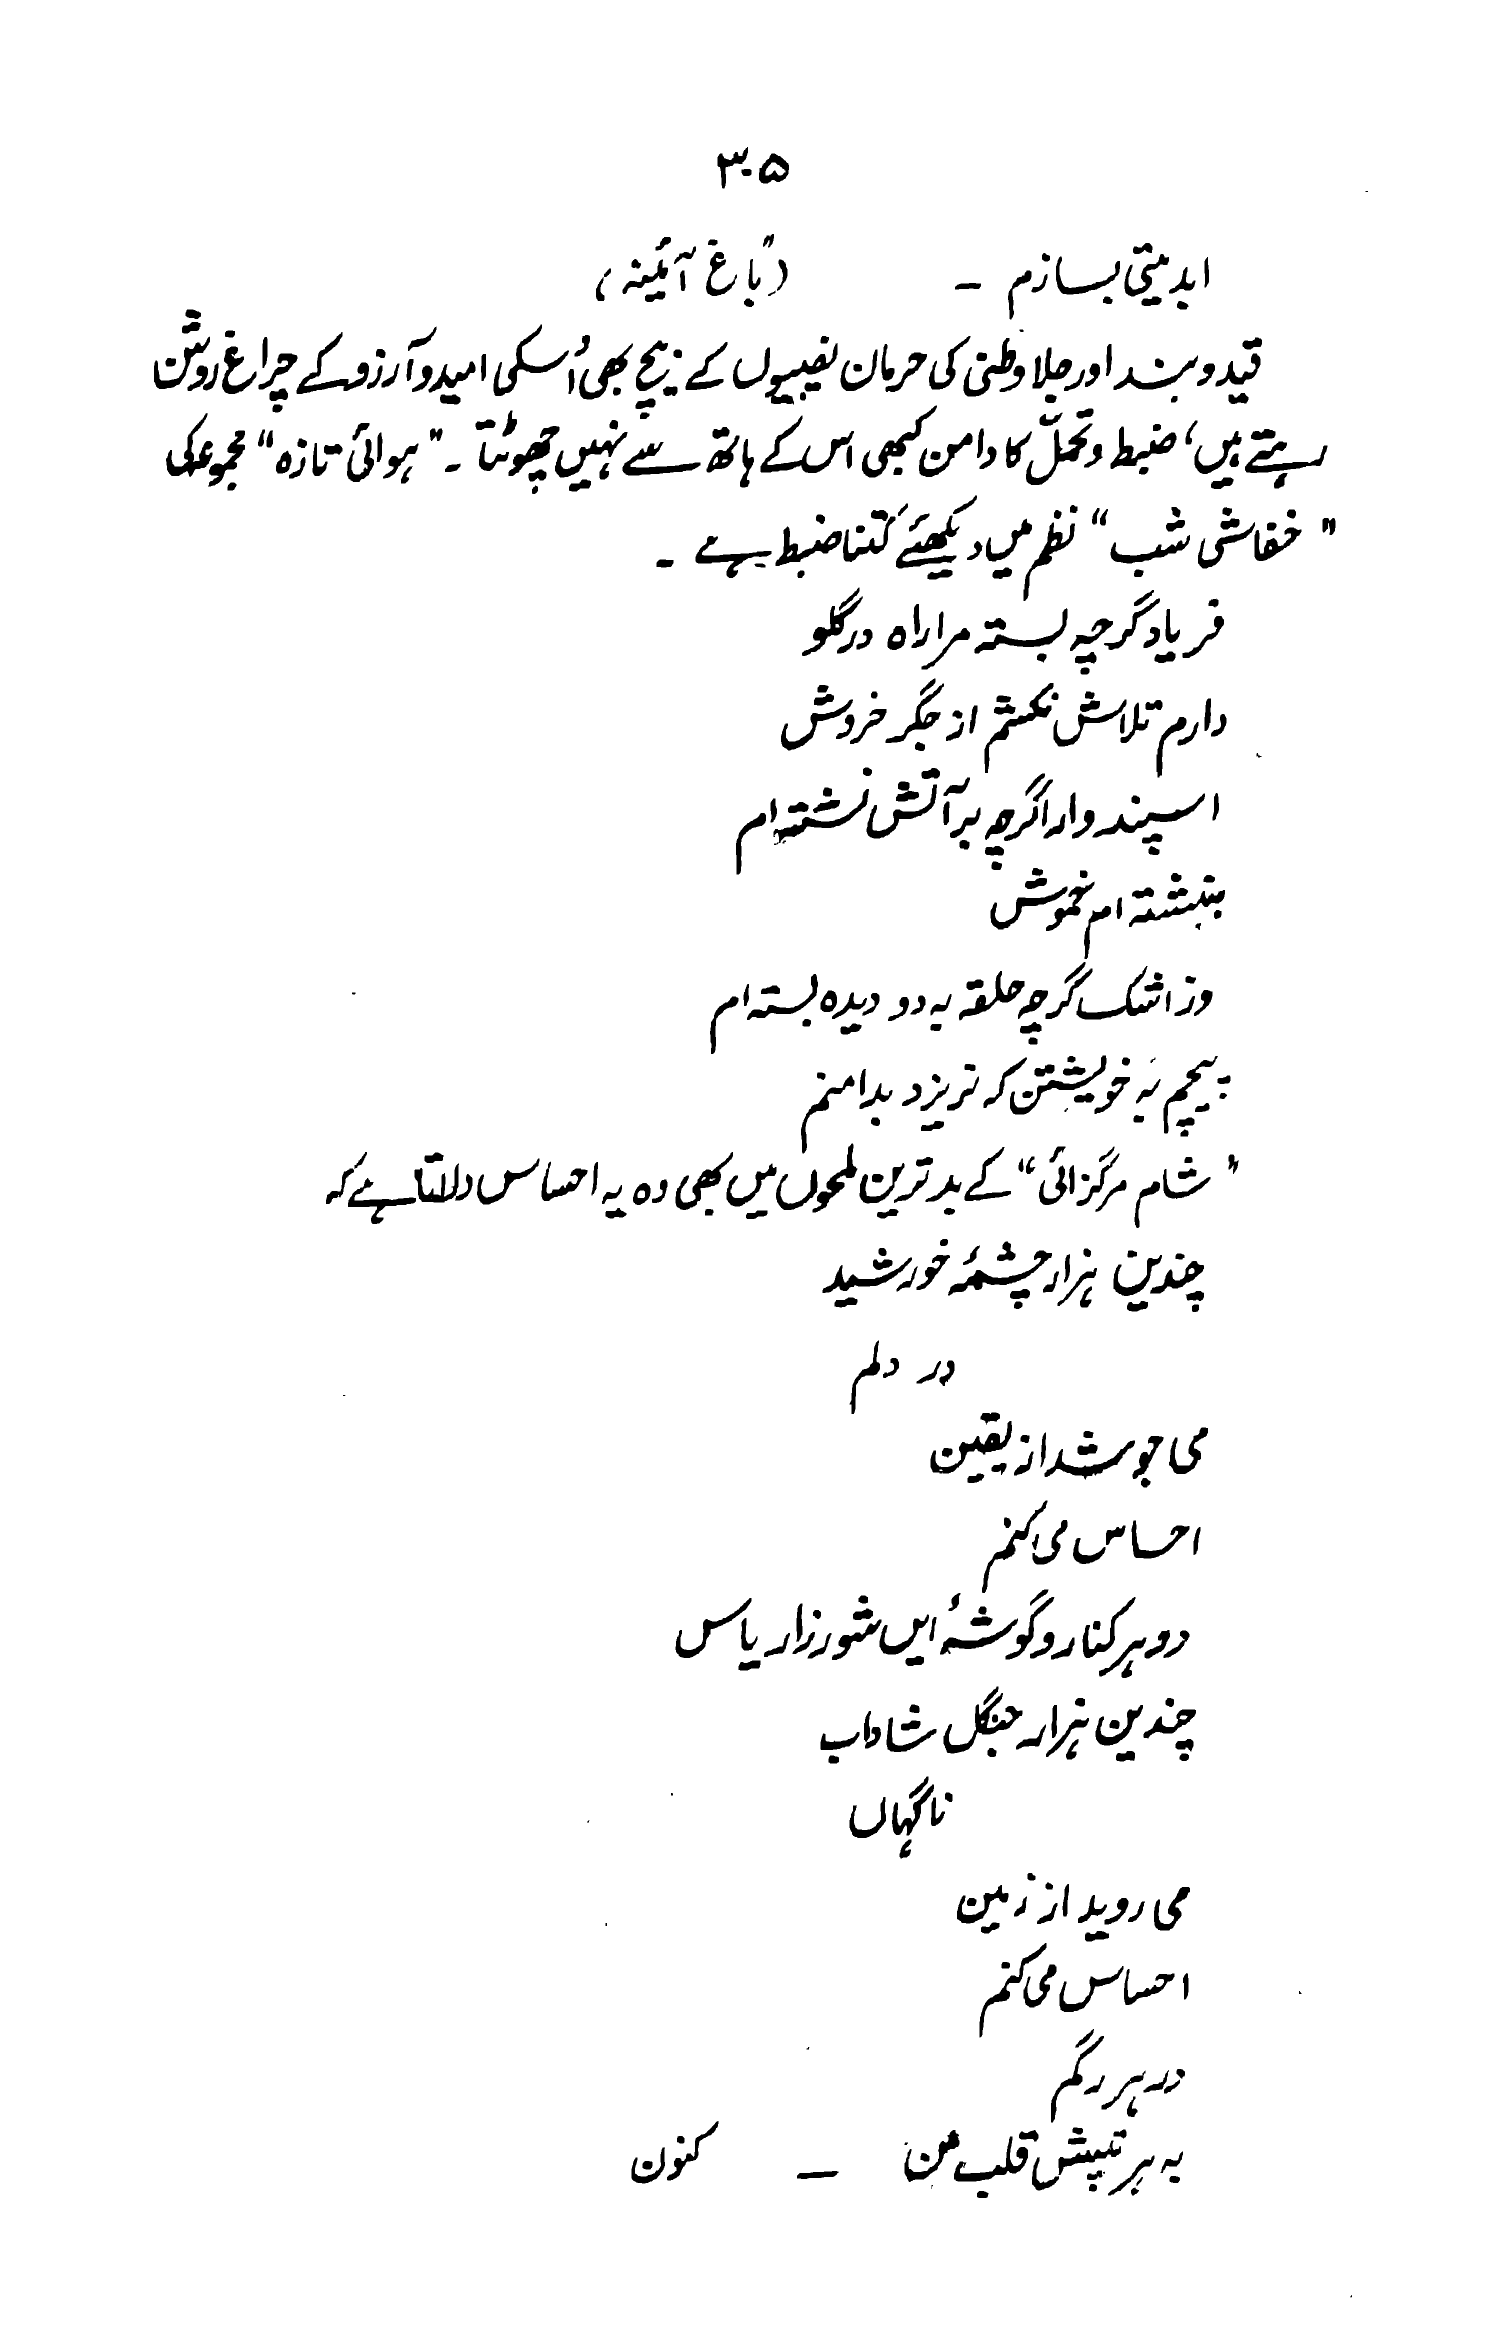 ۳۰۵
ابدیتی بسازم ۔ ("باغ آئینہ)
قید و بند اور جلا وطنی کی حرمان نصیبیوں کے بیچ بھی اُسکی امید و آرزو کے چراغ روشن
رہتے ہیں، ضبط و تحمّل کا دامن کبھی اس کے ہاتھ سے نہیں چھوٹتا ۔ "ہوائی تازہ" مجموعہ کی
"خفاشی شب" نظم میں دیکھئے کتنا ضبط ہے ۔
فریاد گرچہ بستہ مرا راہ در گلو
دارم تلاش نکشم از جگر خروش
اسپند وار اگرچہ بر آتش نشستہ ام
بنشستہ ام خموش
وز اشک گرچہ حلقہ بہ دو دیدہ بستہ ام
پیچم بہ خویشتن کہ نریزد بدامنم
"شام مرگزائی" کے بدترین لمحوں میں بھی وہ یہ احساس دلاتا ہے کہ
چندین ہزار چشمۂ خورشید
در دلم
می جوشد از یقین
احساس می کنم
دو ہر کنار و گوشۂ ایں شورزار یاس
چندین ہزار جنگل شاداب
ناگہاں
می روید از زمین
احساس می کنم
در ہر رگم
بہ ہر تپش قلب من ــ کنون